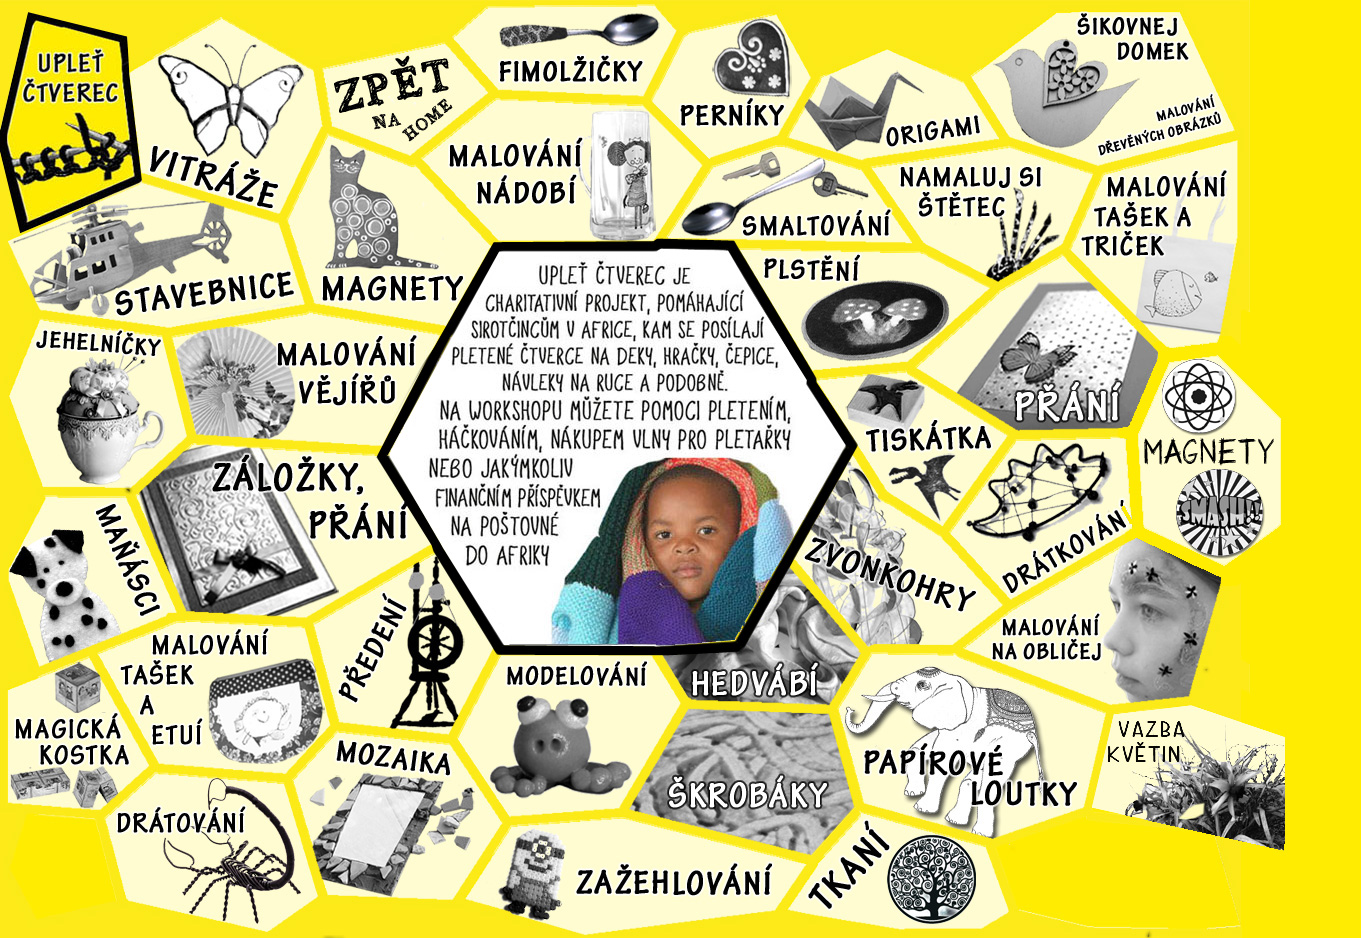 UPLEŤ
ČTVEREC
VITRÁŽE
ZPĚT
NA
HOME
FIMOLŽIČKY
PERNÍKY
ORIGAMI
ŠIKOVNEJ
DOMEK
MALOVÁNÍ
DŘEVĚNÝCH OBRÁZKŮ
MALOVÁNÍ
NÁDOBÍ
SMALTOVÁNÍ
NAMALUJ SI
ŠTĚTEC
MALOVÁNÍ
TAŠEK A
TRIČEK
STAVEBNICE
MAGNETY
PLSTĚNÍ
UPLEŤ ČTVEREC JE
CHARITATIVNÍ PROJEKT, POMÁHAJÍCÍ
SIROTČINCŮM V AFRICE, KAM SE POSÍLAJÍ
PLETENÉ ČTVERCE NA DEKY, HRAČKY, ČEPICE,
NÁVLEKY NA RUCE A PODOBNĚ.
NA WORKSHOPU MŮŽETE POMOCI PLETENÍM,
HÁČKOVÁNÍM, NÁKUPEM VLNY PRO PLETAŘKY
NEBO JAKÝMKOLIV
FINANČNÍM PŘÍSPĚVKEM
NA POŠTOVNÉ
DO AFRIKY
JEHELNÍČKY
MALOVÁNÍ
VĚJÍŘŮ
PŘÁNÍ
TISKÁTKA
MAGNETY
SMASH!!
ZÁLOŽKY,
PŘÁNÍ
MAŇÁSCI
ZVONKOHRY
DRÁTKOVÁNÍ
PŘEDENÍ
MALOVÁNÍ
NA OBLIČEJ
MALOVÁNÍ
TAŠEK
A
ETUÍ
MODELOVÁNÍ
HEDVÁBÍ
MAGICKÁ
KOSTKA
MOZAIKA
ŠKROBÁKY
PAPÍROVÉ
LOUTKY
VAZBA
KVĚTIN
DRÁTOVÁNÍ
ZAŽEHLOVÁNÍ
TKANÍ